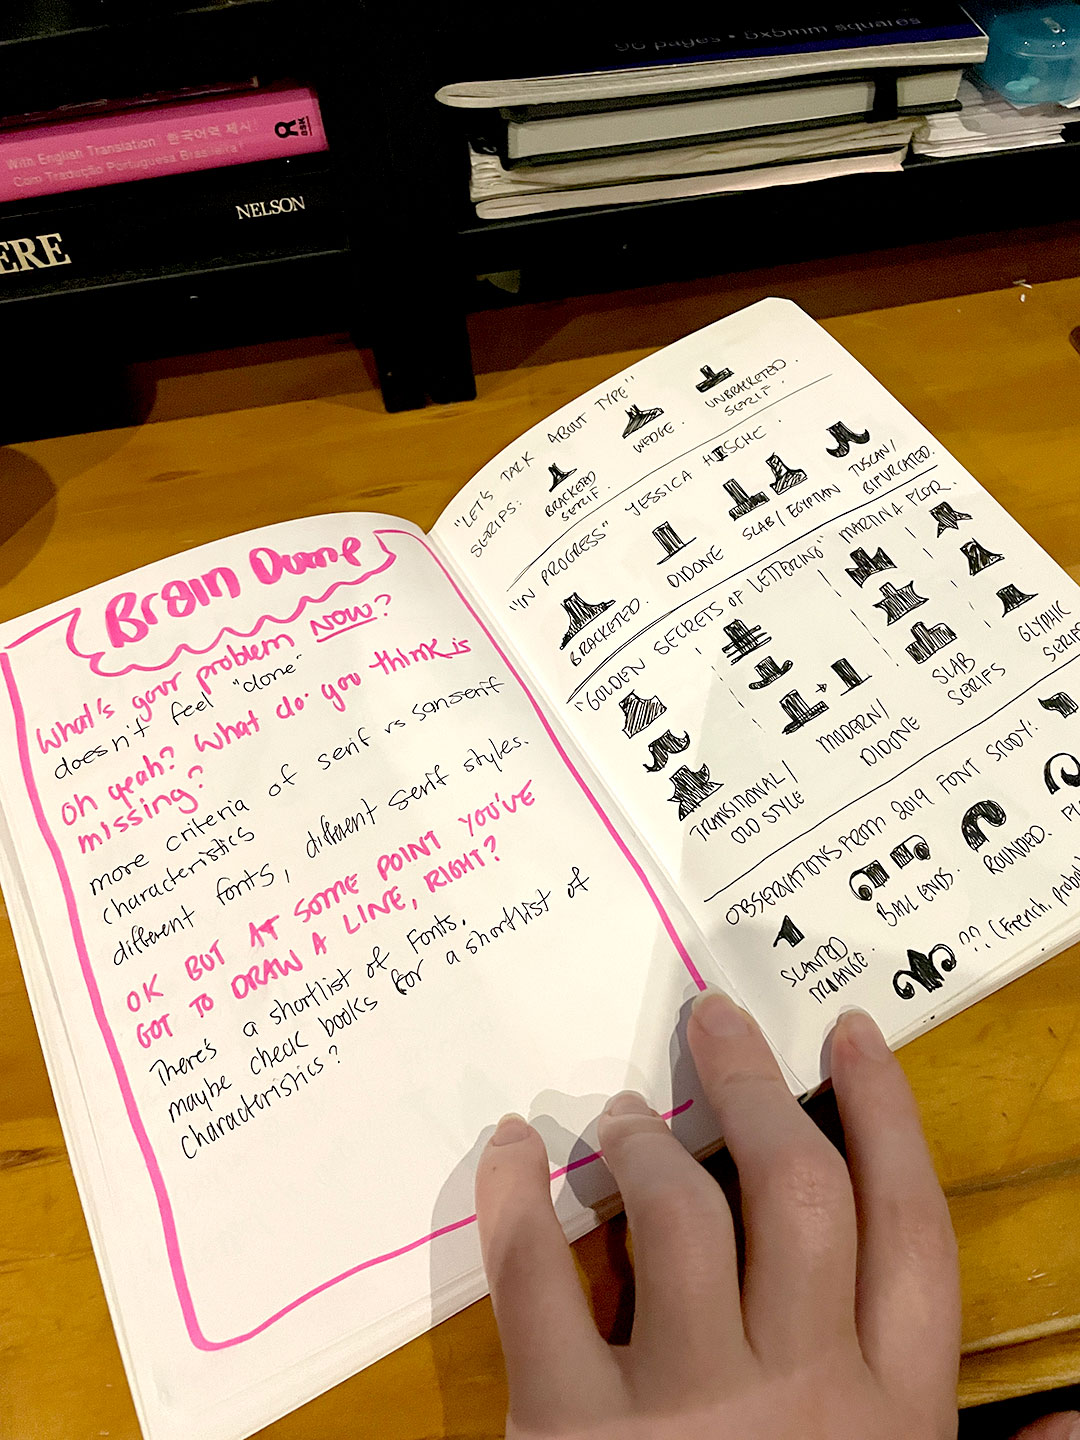 96 pages • 5x5mm squares
With English Translation 한국어역 제시!
Com Tradução Portuguesa Brasileira!
NELSON
ERE
Brain Dump
What's your problem NOW?
doesn't feel "done"
oh yeah? What do you think is
missing?
more criteria of serif vs sanserif
characteristics
different fonts, different serif styles.
OK BUT AT SOME POINT YOU'VE
GOT TO DRAW A LINE, RIGHT?
There's a shortlist of fonts,
maybe check books for a shortlist of
characteristics?
"LET'S TALK ABOUT TYPE"
SERIFS:
BRACKETED
SERIF.
WEDGE.
UNBRACKETED
SERIF.
"IN PROGRESS" JESSICA HISCHE.
BRACKETED.
DIDONE
SLAB/EGYPTIAN
TUSCAN/
BIFURCATED.
"GOLDEN SECRETS OF LETTERING" MARTINA FLOR.
TRANSITIONAL/
OLD STYLE
MODERN/
DIDONE
SLAB
SERIFS
GLYPHIC
SERIFS
OBSERVATIONS FROM 2019 FONT STUDY:
SLANTED
BALL ENDS.
ROUNDED.
?? (French, probab